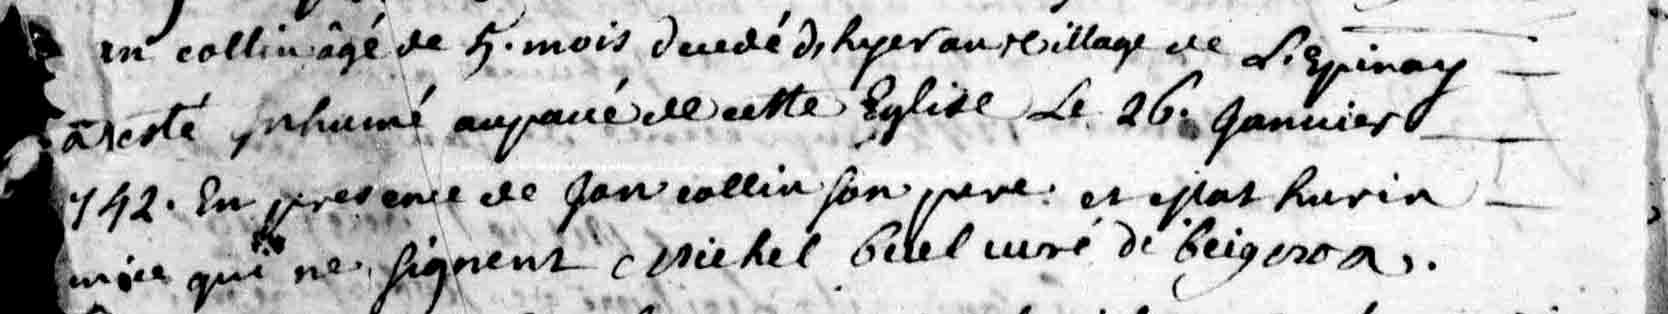 an collin âgé de 5. mois decedé d'hyer au village de L'Epinay
a esté inhumé au pavé de cette Eglise Le 26. Janvier
742. En presence de Jan collin son pere. et Mathurin
qui ne signent Michel buel curé de